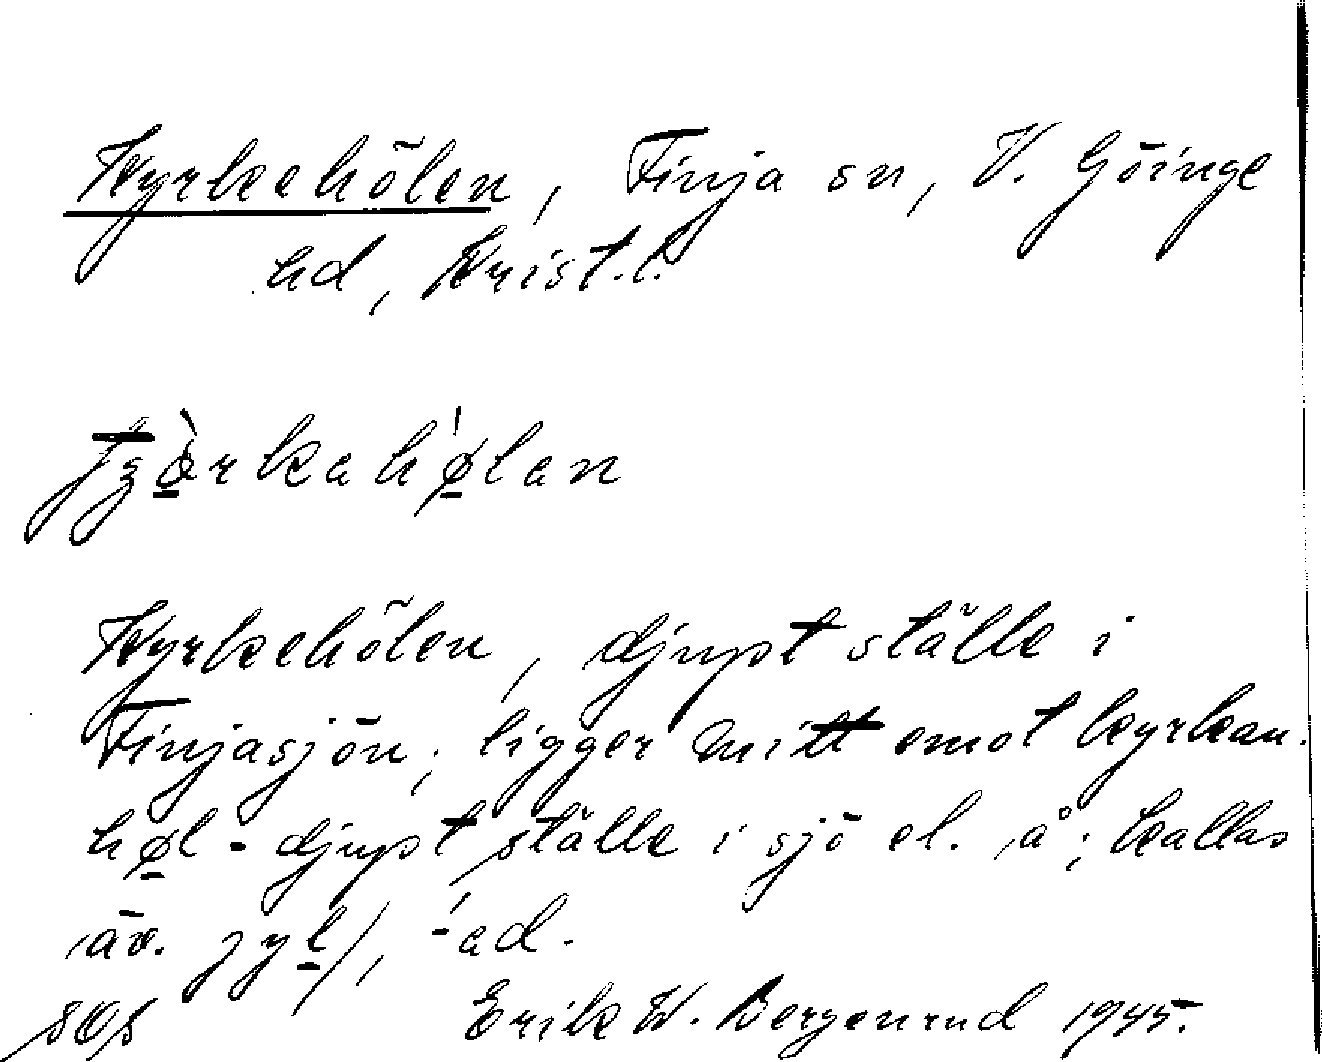 Kyrkehölen, Finja sn, V. Göinge
hd, Krist.l.
kahølan
Kyrkehölen, djupt ställe i
Finjasjön; ligger mitt emot kyrkan.
høl - djupt ställe i sjö el. å; kallas
äv. jyl/, -ad.
Erik W. Bergenrud 1945.